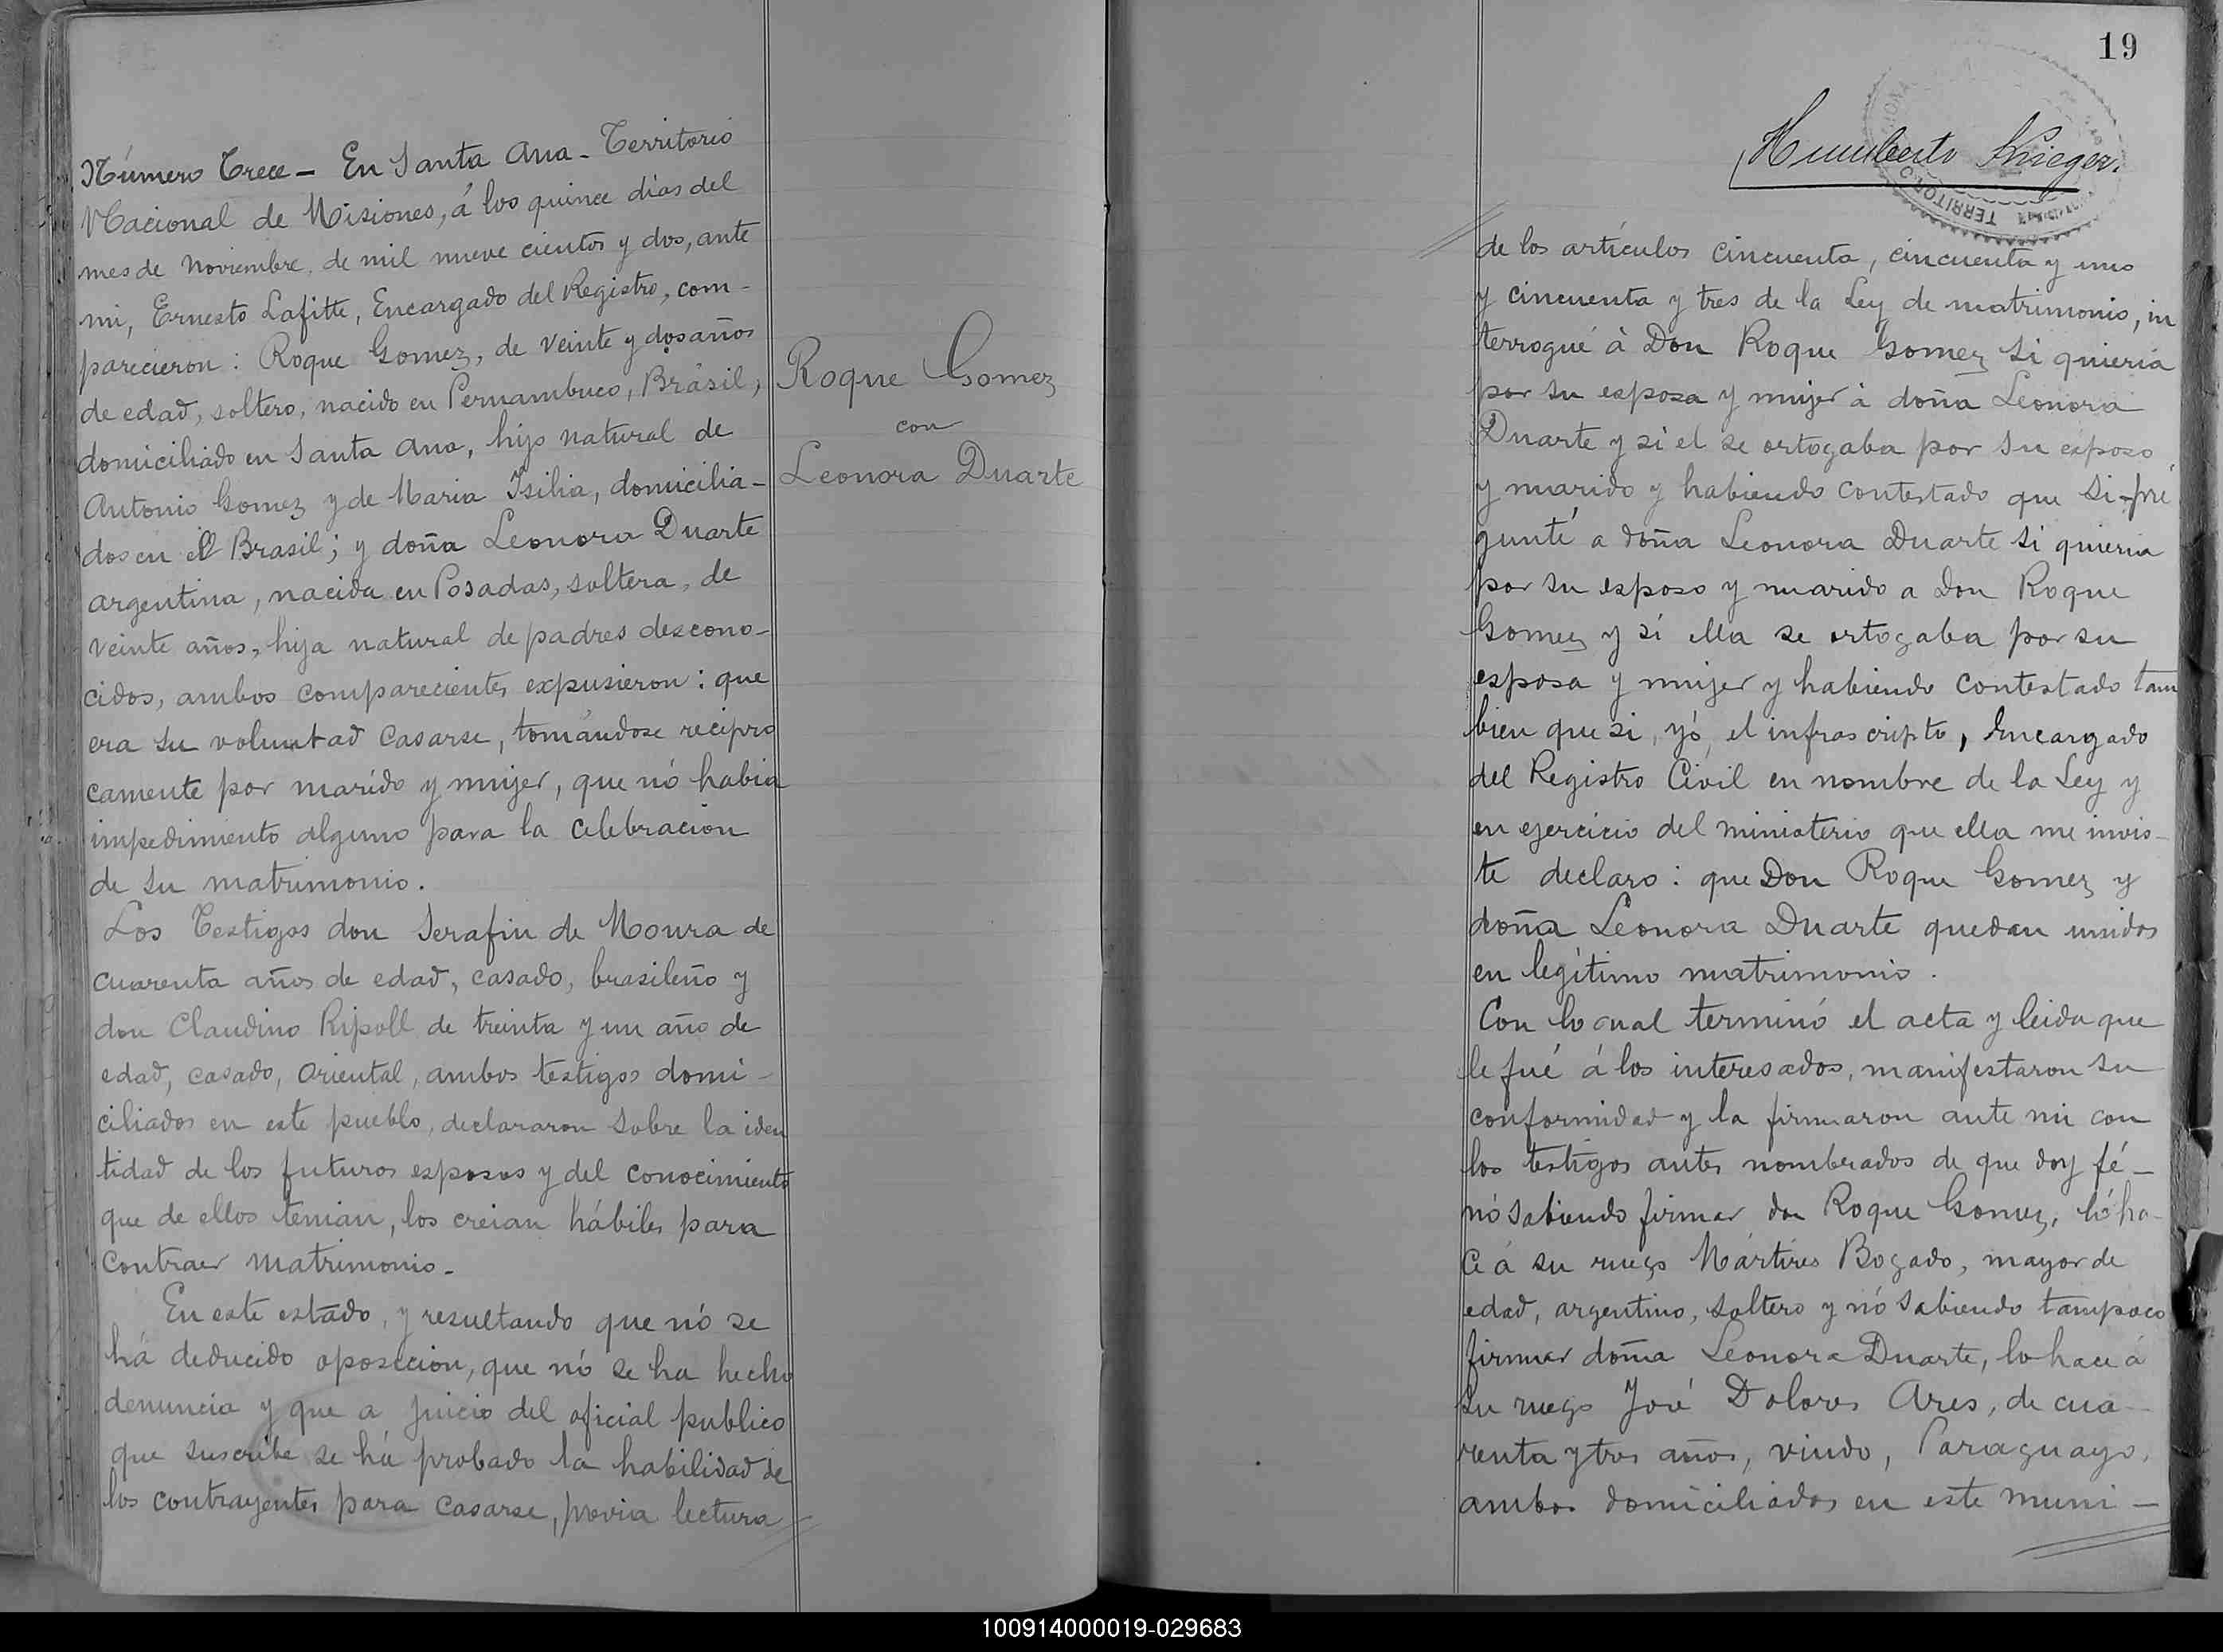 Número Trece - En Santa Ana - Territorio
Nacional de Misiones, á los quince dias del
mes de Noviembre, de mil nueve cientos y dos, ante
mi, Ernesto Lafitte, Encargado del Registro, com-
parecieron: Roque Gomez, de veinte y dos años
de edad, soltero, nacido en Pernambuco, Brasil,
domiciliado en Santa Ana, hijo natural de
Antonio Gomez y de Maria Isilia, domicilia-
dos en el Brasil; y doña Leonora Duarte
argentina, nacida en Posadas, soltera, de
veinte años, hija natural de padres descono-
cidos, ambos comparecientes expusieron: que
era su voluntad casarse, tomándose recipro
camente por marido y mujer, que nó habia
impedimento alguno para la celebracion
de su matrimonio.
Los Testigos don Serafin de Moura de
cuarenta años de edad, casado, brasileño y
don Claudino Ripoll de treinta y un año de
edad, casado, oriental, ambos testigos domi-
ciliados en este pueblo, declararon sobre la iden
tidad de los futuros esposos y del conocimiento
que de ellos tenian, los creian hábiles para
contraer matrimonio.-
En este estado, y resultando que nó se
há deducido oposicion, que nó se ha hecho
denuncia y que a juicio del oficial publico
que suscribe se há probado la habilidad de
los contrayentes para casarse, previa lectura
Roque Gomez
con
Leonora Duarte
19
Humberto Krieger.
TERRITORIO
de los artículos cincuenta, cincuenta y uno
y cincuenta y tres de la Ley de matrimonio, in
terrogué à Don Roque Gomez si quieria
por su esposa y mujer à doña Leonora
Duarte y si el se ortogaba por su esposo
y marido y habiendo contestado que si - pre
gunté a doña Leonora Duarte si quieria
por su esposo y marido a Don Roque
Gomez y si ella se ortogaba por su
esposa y mujer y habiendo contestado tam
bien que si, yó, el infrascripto, Encargado
del Registro Civil en nombre de la Ley y
en ejercicio del ministerio que ella me invis-
te declaro: que Don Roque Gomez y
doña Leonora Duarte quedan unidos
en legítimo matrimonio.
Con lo cual terminó el acta y leida que
le fué á los interesados, manifestaron su
conformidad y la firmaron ante mi con
los testigos antes nombrados de que doy fé -
nó sabiendo firmar don Roque Gomez, ló ha-
ce á su ruego Mártires Bogado, mayor de
edad, argentino, soltero y nó sabiendo tampoco
firmar doña Leonora Duarte, lo hace á
su ruego José Dolores Ares, de cua-
renta y tres años, viudo, Paraguayo,
ambos domiciliados en este muni-
100914000019-029683